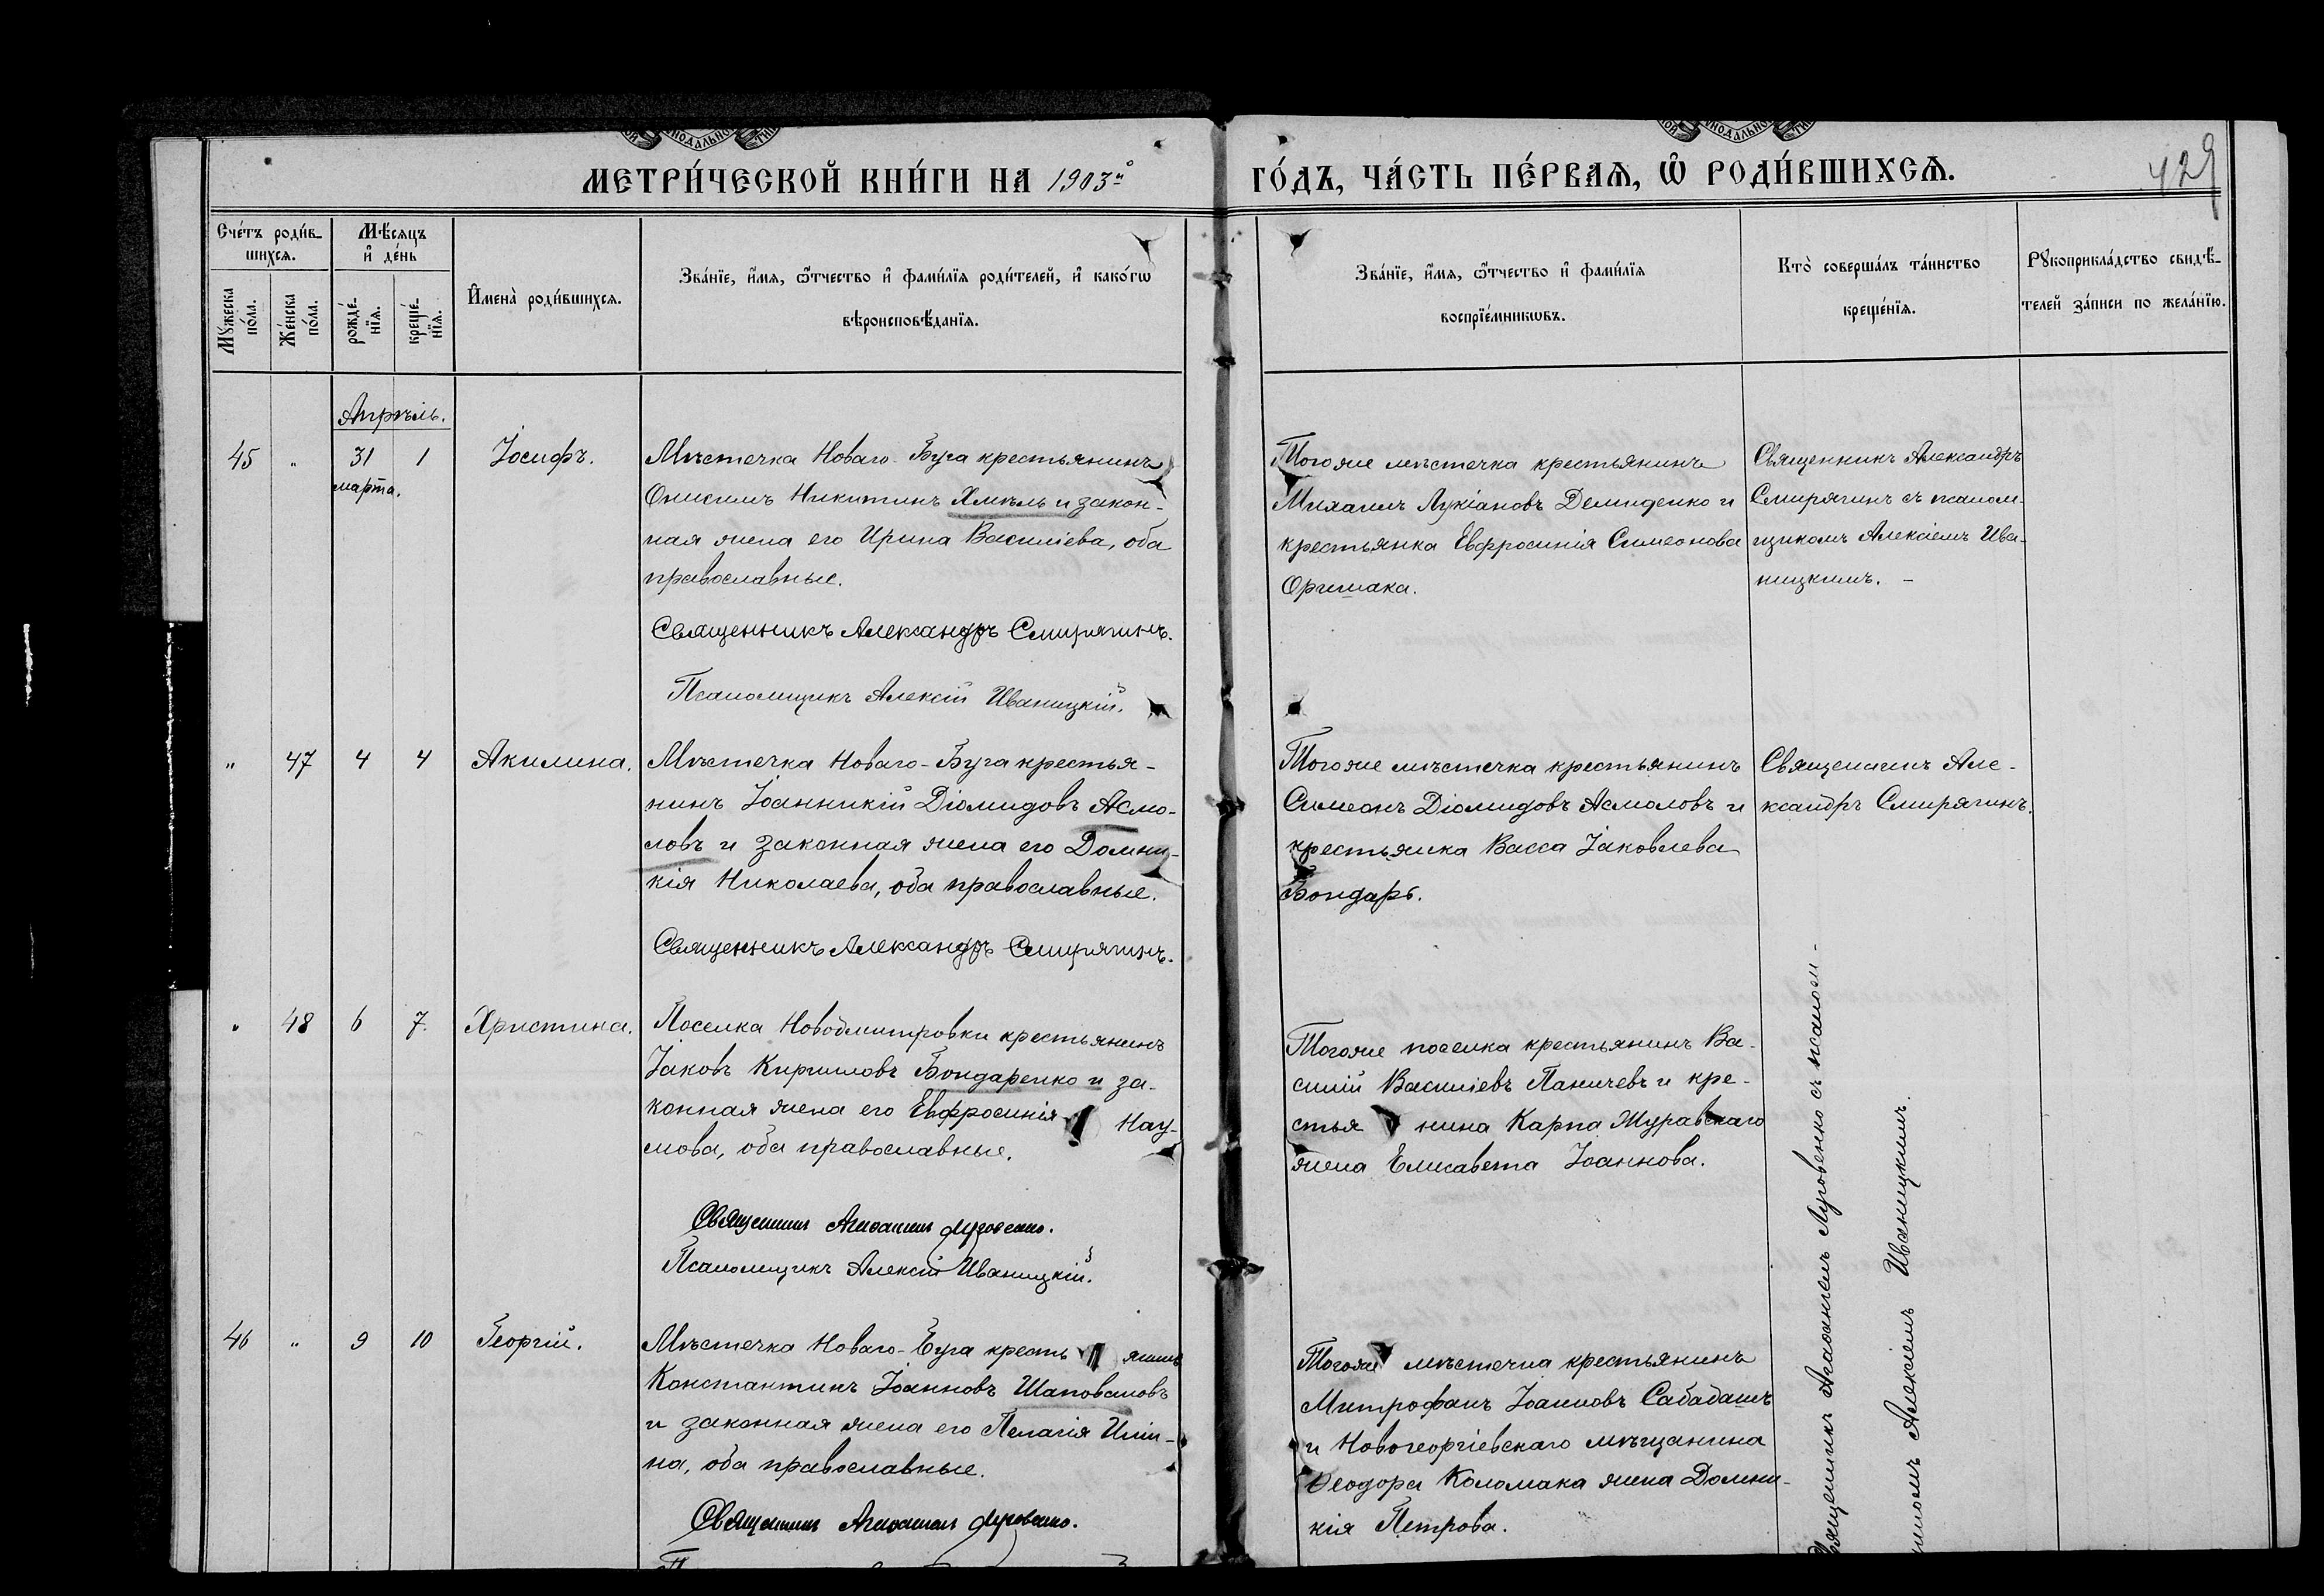 МЕТРИ́ЧЕСКОЙ КНИ́ГИ НА 1903й
ГО́ДЪ, ЧА́СТЬ ПЕ́РВАѦ, Ѡ҆ РОДИ́ВШИХСѦ.
429
Сче́тъ роди́в-
шихсѧ.
Мѣ́сѧцъ
и҆ де́нь
Мꙋ́жеска
по́ла.
Же́нска
по́ла.
рожде́-
нїѧ.
креще́-
нїѧ.
И҆мена̀ роди́вшихсѧ.
Зва́нїе, и҆́мѧ, ѻ҆́тчество и҆ фами́лїѧ роди́телей, и҆ како́гѡ
вѣроисповѣ́данїѧ.
Зва́нїе, и҆́мѧ, ѻ҆́тчество и҆ фами́лїѧ
воспрїе́мникѡвъ.
Кто̀ соверша́лъ та́инство
креще́нїѧ.
Рꙋкоприкла́дство свидѣ́-
телей за́писи по жела́нїю.
Апрѣль.
45 " 31 1 Іосифъ.
марта.
Мѣстечка Новаго-Буга крестьянинъ
Онисимъ Никитинъ Хмѣль и закон-
ная жена его Ирина Василіева, оба
православные.
Священникъ Александръ Смирягинъ.
Псаломщикъ Алексій Иваницкій.
Тогоже мѣстечка крестьянинъ
Михаилъ Лукіановъ Демиденко и
крестьянка Евфросинія Симеонова
Оришака.
Священникъ Александръ
Смирягинъ съ псалом-
щикомъ Алексіемъ Ива-
ницкимъ. –
" 47 4 4 Акилина.
Мѣстечка Новаго-Буга крестья-
нинъ Іоанникій Діомидовъ Асмо-
ловъ и законная жена его Домни-
кія Николаева, оба православные.
Священникъ Александръ Смирягинъ.
Тогоже мѣстечка крестьянинъ
Симеонъ Діомидовъ Асмоловъ и
крестьянка Васса Іаковлева
Бондарь.
Священникъ Але-
ксандръ Смирягинъ.
" 48 6 7. Христина.
Поселка Новодмитровки крестьянинъ
Іаковъ Кирилловъ Бондаренко и за-
конная жена его Евфросинія Нау-
мова, оба православные.
Священникъ Агафангелъ Луговенко.
Псаломщикъ Алексій Иваницкій.
Тогоже поселка крестьянинъ Ва-
силій Василіевъ Паничевъ и кре-
стья нина Карпа Журавскаго
жена Елисавета Іоаннова.
46 " 9 10 Георгій.
Мѣстечка Новаго-Буга кресть янинъ
Константинъ Іоанновъ Шаповаловъ
и законная жена его Пелагія Иліи-
на, оба православные.
Священникъ Агафангелъ Луговенко.
Тогоже мѣстечка крестьянинъ
Митрофанъ Іоанновъ Сабадашъ
и Новогеоргіевскаго мѣщанина
Ѳеодора Коломака жена Домни-
кія Петрова.
Священникъ Агафангелъ Луговенко съ псалом-
щикомъ Алексіемъ Иваницкимъ.